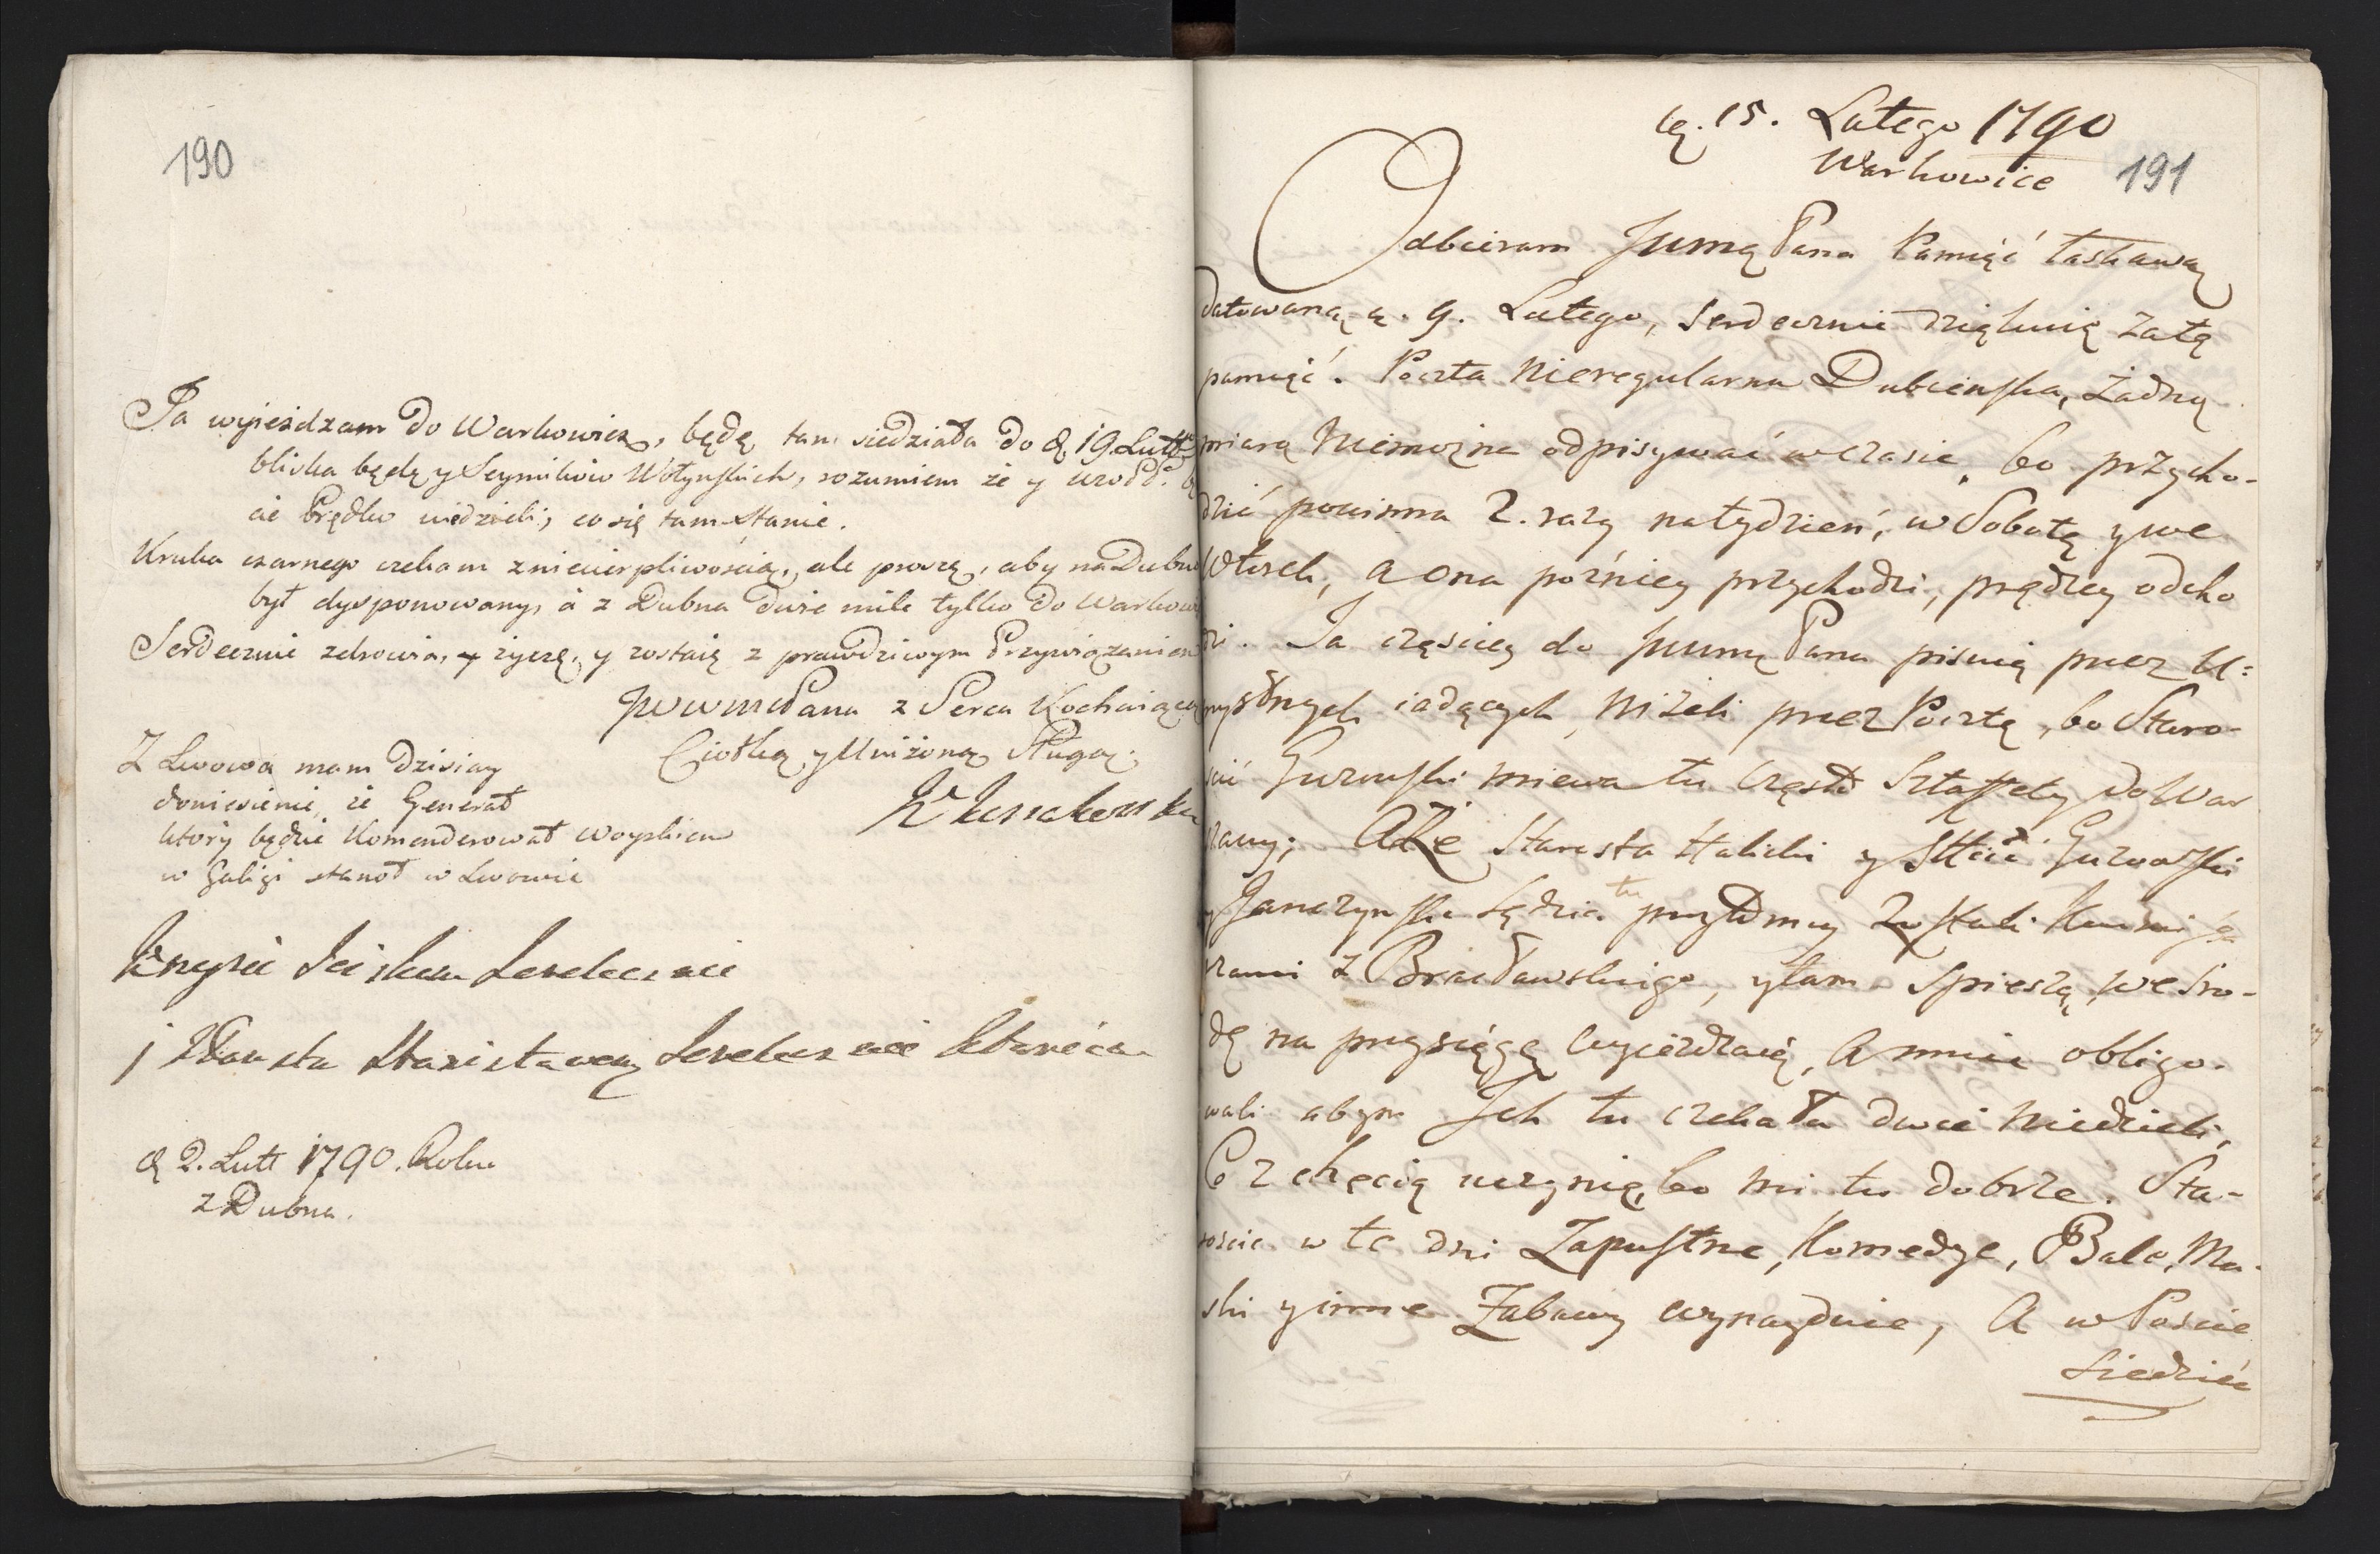 190
Ja wyjeżdzam do Warkowicz, będę tam siedziała do d. 19. Lutt
bliska będę y Seymików Wołyńskich, rozumiem że y
cie Prędko wiedzieli, co się tam stanie.
Kruka czarnego czekam z niecierpliwością, ale proszę, aby na Dubno
był dysponowany, a z Dubna dwie mile tylko do Warkow
Serdecznie zdrowia, życzę, y zostaię z prawdziwym Przywiązaniem
JWWMPana z Serca Kochaiącą
Ciotką y Uniżoną Sługą
Z Lwowa mam dzisiay
doniesienie, że Generał
który będzie Komenderował Woyskiem
w Galigi stanoł w Lwowie
Krysie Sciskam Serdecznie
i Starosta Stanisława Serdecznie
d. 2. Lutt 1790. Roku
z Dubna.
d. 15. Lutego 1790
Warkowice
191
Odbieram Jwmę Pana Pamięć łaskawą
datowaną d. 9. Lutego, Serdecznie dziękuię za tę
pamięć. Poczta Nieregularna Dubieńska, Żadną
miarą Niemożna odpisywać w czasie, bo przycho-
dzić powinna 2. razy na tydzień, w Sobotę y we
Wtorek, a ona poźniey przychodzi, prędzey odcho
dzi. Ja częsciey do Jwmę Pana pisuię przez U=
myslnych iadących, Niżeli przez Pocztę, bo Staro-
scic Gurowski miewa tu często Sztaffety do War
szawy; A Że Starosta Halicki y Gurowski
y Janczyński Sędzia tu przytomny zostali
rzami z Bracławskiego, y tam spieszą, we Sro-
dę na przysięgę wyieżdzaią, A mnie obligo-
wali abym Ich tu czekała dwie Niedzieli,
Co z chęcią uczynię, bo mi tu dobrze. Sta-
roscic w te dni Zapustne, Komedye, Bale, Ma-
ski y inne Zabawy wynayduie, A w Poscie
Siedzieć